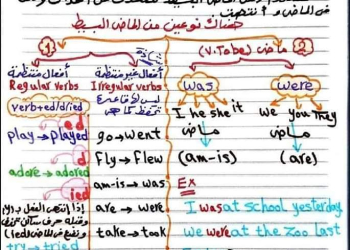 في الماضي و انتهت.
هناك نوعين من الماضي البسيط
1
ماضي (v. To be) 2
أفعال منتظمة
Regular verbs
أفعال غير منتظمة
Irregular verbs
ليس لها قاعدة
تحفظ كما هي
was
were
verb+ed/d/ied
I he she it
we you they
ed
play → played
go → went
ماضي
ماضي
d
fly → flew
(am-is)
(are)
adore → adored
am-is → was
Ex
ied
are → were
I was at school yesterday
إذا انتهى الفعل بـ (y)
وقبله حرف ساكن تحذف
و نضع في الماضي (ied)
take → took
we were at the zoo last
try → tried